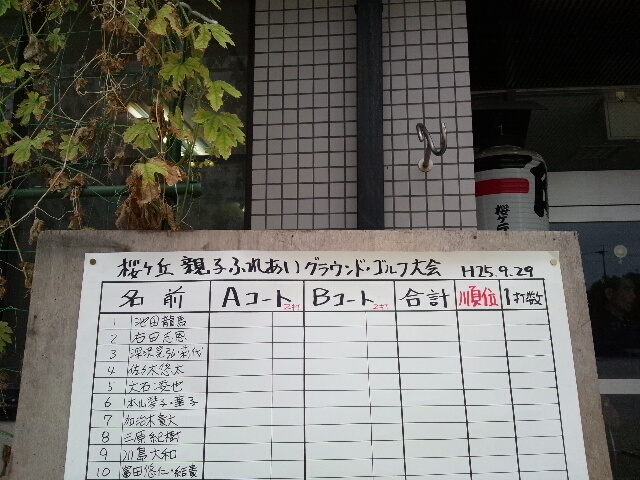 桜ヶ丘 親子ふれあいグラウンド・ゴルフ大会 H25.9.29
名前 Aコート Bコート 合計 順位 1打数
1 池田龍馬
2 石田
3 深沢
4 佐々木悠太
5 大石
6 本山
7 加治木貴大
8 三原紀樹
9 川島大和
10 富田悠仁・結貴
桜ヶ丘